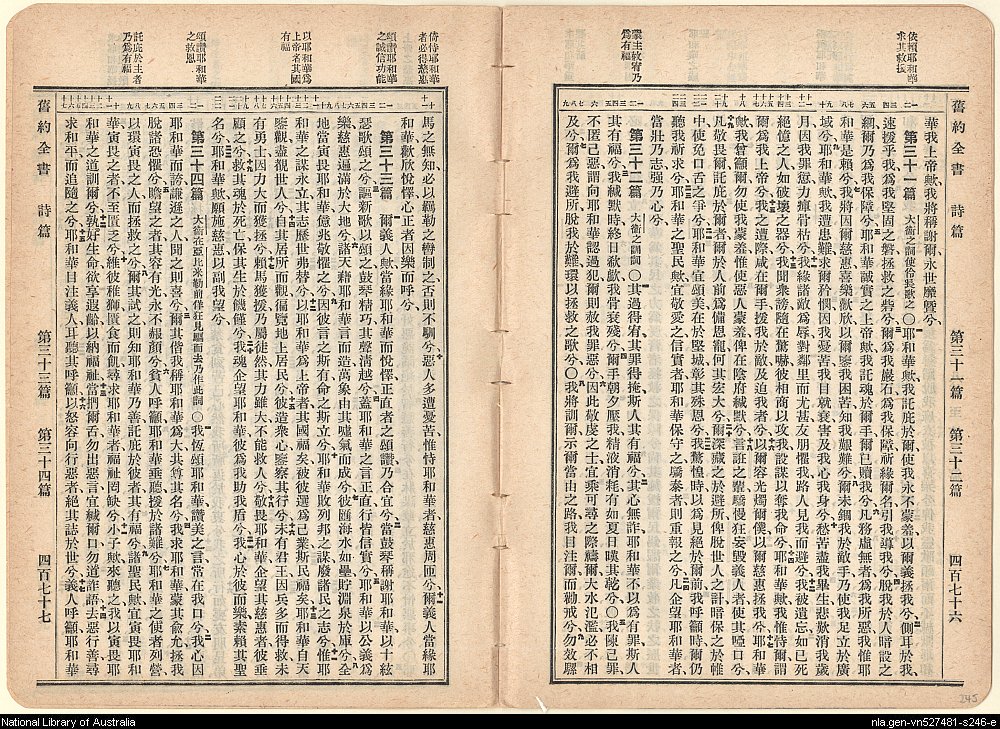 舊約全書 詩篇 第三十一篇 至 第三十二篇 四百七十六
依賴耶和華
求其救援
蒙主赦宥乃
爲有福
華我上帝歟我將稱謝爾永世靡曁兮
第三十一篇 大衞之詞使伶長歌之〇耶和華歟我託庇於爾使我永不蒙羞以爾義拯我兮側耳於我
速援乎我爲我堅固之磐拯救之砦兮爾爲我巖石爲我保障祈緣爾名引我導我兮脫我於人暗設之
網爾乃爲我保障兮耶和華誠實之上帝歟我託魂於爾手爾已贖我兮凡務虛無者爲我所惡我惟耶
和華是賴兮我將因爾慈惠喜樂歡欣以爾鑒我困苦知我艱難兮爾未錮我於敵手乃使我足立於廣
域兮耶和華歟我遭患難求爾矜憫因我憂苦我目就衰害及我心我身兮愁苦盡我畢生悲歎消我歲
月因我罪愆力瘁骨枯兮我緣諸敵爲辱對鄰里而尤甚友朋懼我路人見我而避兮我被遺忘如已死
絕憶之人如破壞之器兮我聞衆謗隨在驚嚇彼相商以攻我設謀以奪我命兮耶和華歟我惟恃爾謂
爾爲我上帝兮我之遭際咸在爾手拯我於敵及迫我者兮以爾容光燭爾僕以爾慈惠拯我兮耶和華
歟我曾籲爾勿使我蒙羞惟使惡人蒙羞俾在陰府緘默兮
中使免口舌之爭兮耶和華宜頌美在於堅城彰其殊恩兮我驚惶時以爲見絕於爾前我呼籲時爾仍
聽我祈求兮耶和華之聖民歟宜敬愛之信實者耶和華保守之驕泰者則重報之兮凡企望耶和華者
當壯乃志强乃心兮
第三十二篇 大衞之訓詞〇其過得宥其罪得掩斯人其有福兮其心無詐耶和華不以爲有罪斯人
其有福兮我緘默時終日欷歔我骨衰殘兮爾手朝夕壓我精液消耗有如夏日暵其乾兮〇我陳己罪
不匿己惡謂向耶和華認過犯爾則赦我罪惡兮因此敬虔之士宜乘可尋之際禱爾大水氾濫必不相
及兮爾爲我避所脫我於難環我以拯救之歌兮〇我將訓爾示爾當由之路我目注爾而勸戒兮勿效騾
舊約全書 詩篇 第三十三篇 第三十四篇 四百七十七
倚恃耶和華
者必得慈惠
頌讚耶和華
之誠信功能
以耶和華爲
上帝者其國
有福
頌讚耶和華
之救恩
託庇於主者
乃爲有福
馬之無知必以羈勒之轡制之否則不馴兮惡人多遭憂苦惟恃耶和華者慈惠周匝兮爾義人當緣耶
和華歡欣悅懌心正者因樂而呼兮
第三十三篇 爾義人歟當緣耶和華而悅懌正直者之頌讚乃合宜兮當鼓琴稱謝耶和華以十絃
瑟歌頌之兮謳新歌以頌之鼓琴精巧其聲清越兮蓋耶和華之言正直行皆信實兮耶和華以公義爲
樂慈惠遍滿於大地兮諸天藉耶和華言而造萬象由其噓氣而成兮彼匯海水如壘貯淵泉於庫兮全
地當寅畏耶和華億兆敬懼之兮彼言之斯有命之斯立兮耶和華敗列邦之謀廢諸民之志兮惟耶
和華之謀永立其志歷世弗替兮以耶和華爲上帝者其國福矣彼選爲己業斯民福矣耶和華自天
鑒觀盡視世人兮自其居所而觀徧覽地上居民兮彼造衆心鑒察其行兮未有君王因兵多而得救未
有勇士因力大而獲拯兮賴馬獲援乃屬徒然其力雖大不能救人兮敬畏耶和華企望其慈惠者彼垂
顧之兮救其魂於死亡保其生於饑饉兮我魂企望耶和華彼爲我助我盾兮我心於彼而樂素賴其聖
名兮耶和華歟願施慈惠以副我望兮
第三十四篇 大衞在亞比米勒前佯狂見驅而去乃作此詞〇我恆頌耶和華讚美之言常在我口兮我心因
耶和華而誇謙遜之人聞之則喜兮爾其偕我稱耶和華爲大其尊其名兮我求耶和華蒙其兪允拯我
脫諸恐懼兮瞻望之者其容有光永不赧顏兮貧人呼籲耶和華垂聽援於諸難兮耶和華之使者列營
以環寅畏之人而拯救之兮爾其試之則知耶和華乃善託庇於彼者其有福兮諸聖民歟宜寅畏耶和
華寅畏之者不至匱乏兮維彼稚獅匱食而飢尋求耶和華者福祉罔缺兮小子歟來聽之我以寅畏耶
和華之道訓爾兮孰好生命欲享遐齡以納福祉當捫爾舌勿出惡言宜緘爾口勿道詐語去惡行善尋
求和平而追隨之兮耶和華目注義人耳聽其呼籲以怒容向行惡者絕其誌於世兮義人呼籲耶和華
245
National Library of Australia
nla.gen-vn527481-s246-e